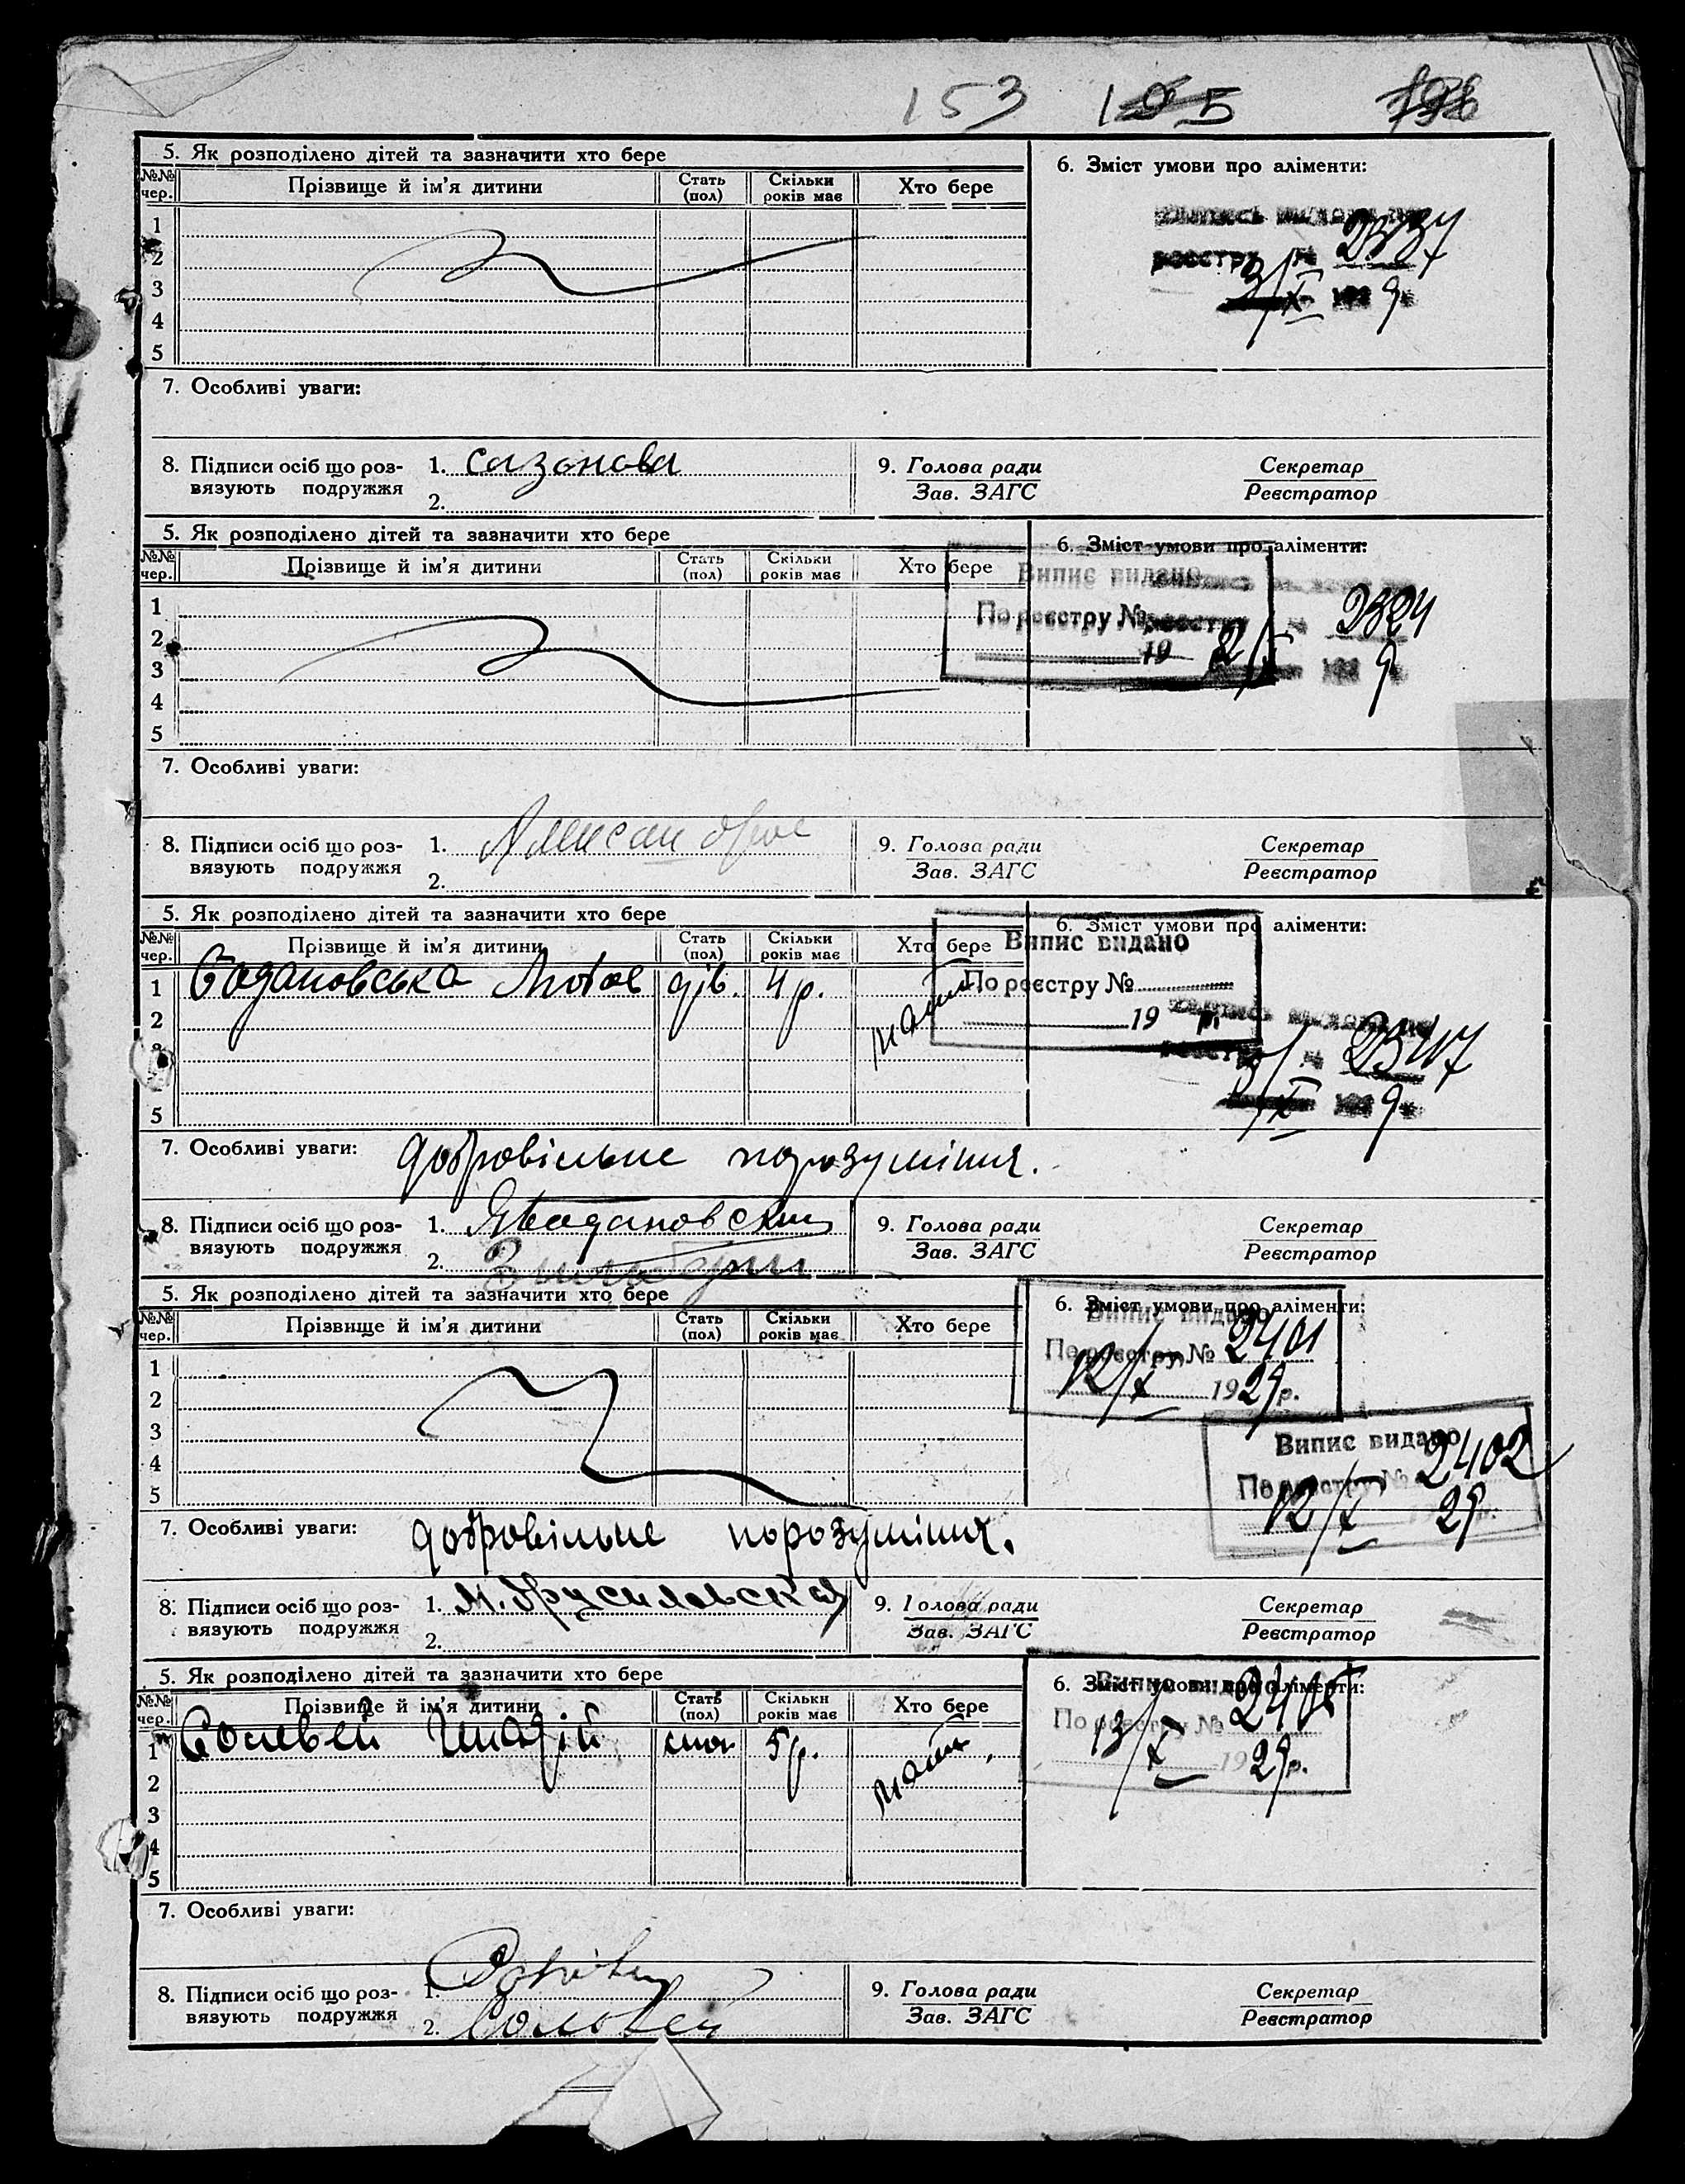 153 195
5. Як розподілено дітей та зазначити хто бере
6. Зміст умови про аліменти:
№№ чер. Прізвище й ім'я дитини Стать (пол) Скільки років має Хто бере
1
2
3
4
5
реєстру № 2337
3/X 192 9
7. Особливі уваги:
8. Підписи осіб що роз-вязують подружжя
1. Сазонова
2.
9. Голова ради
Зав. ЗАГС
Секретар
Реєстратор
5. Як розподілено дітей та зазначити хто бере
6. Зміст умови про аліменти:
№№ чер. Прізвище й ім'я дитини Стать (пол) Скільки років має Хто бере
Випис видано
По реєстру №
19
1
2
3
4
5
2/X 192 9
7. Особливі уваги:
8. Підписи осіб що роз-вязують подружжя
1.
2.
9. Голова ради
Зав. ЗАГС
Секретар
Реєстратор
5. Як розподілено дітей та зазначити хто бере
6. Зміст умови про аліменти:
№№ чер. Прізвище й ім'я дитини Стать (пол) Скільки років має Хто бере
Випис видано
По реєстру №
19 р.
1 Любов дів. 4 р. мати
2
5
3/X 192 9
7. Особливі уваги: добровільне порозуміння.
8. Підписи осіб що роз-вязують подружжя
1.
2.
9. Голова ради
Зав. ЗАГС
Секретар
Реєстратор
5. Як розподілено дітей та зазначити хто бере
6. Зміст умови про аліменти:
№№ чер. Прізвище й ім'я дитини Стать (пол) Скільки років має Хто бере
Випис видано
По реєстру № 2401
12/X 1929 р.
1
2
3
4
5
Випис видано
По реєстру № 2402
12/X 29 р.
7. Особливі уваги: добровільне порозуміння.
8. Підписи осіб що роз-вязують подружжя
1. М. Брусиловская
2.
9. Голова ради
Зав. ЗАГС
Секретар
Реєстратор
5. Як розподілено дітей та зазначити хто бере
6. Зміст умови про аліменти:
№№ чер. Прізвище й ім'я дитини Стать (пол) Скільки років має Хто бере
Випис видано
По реєстру №
13/X 1929 р.
1 Соловей 5 р. мати.
2
3
4
5
7. Особливі уваги:
8. Підписи осіб що роз-вязують подружжя
1.
2. Соловей
9. Голова ради
Зав. ЗАГС
Секретар
Реєстратор